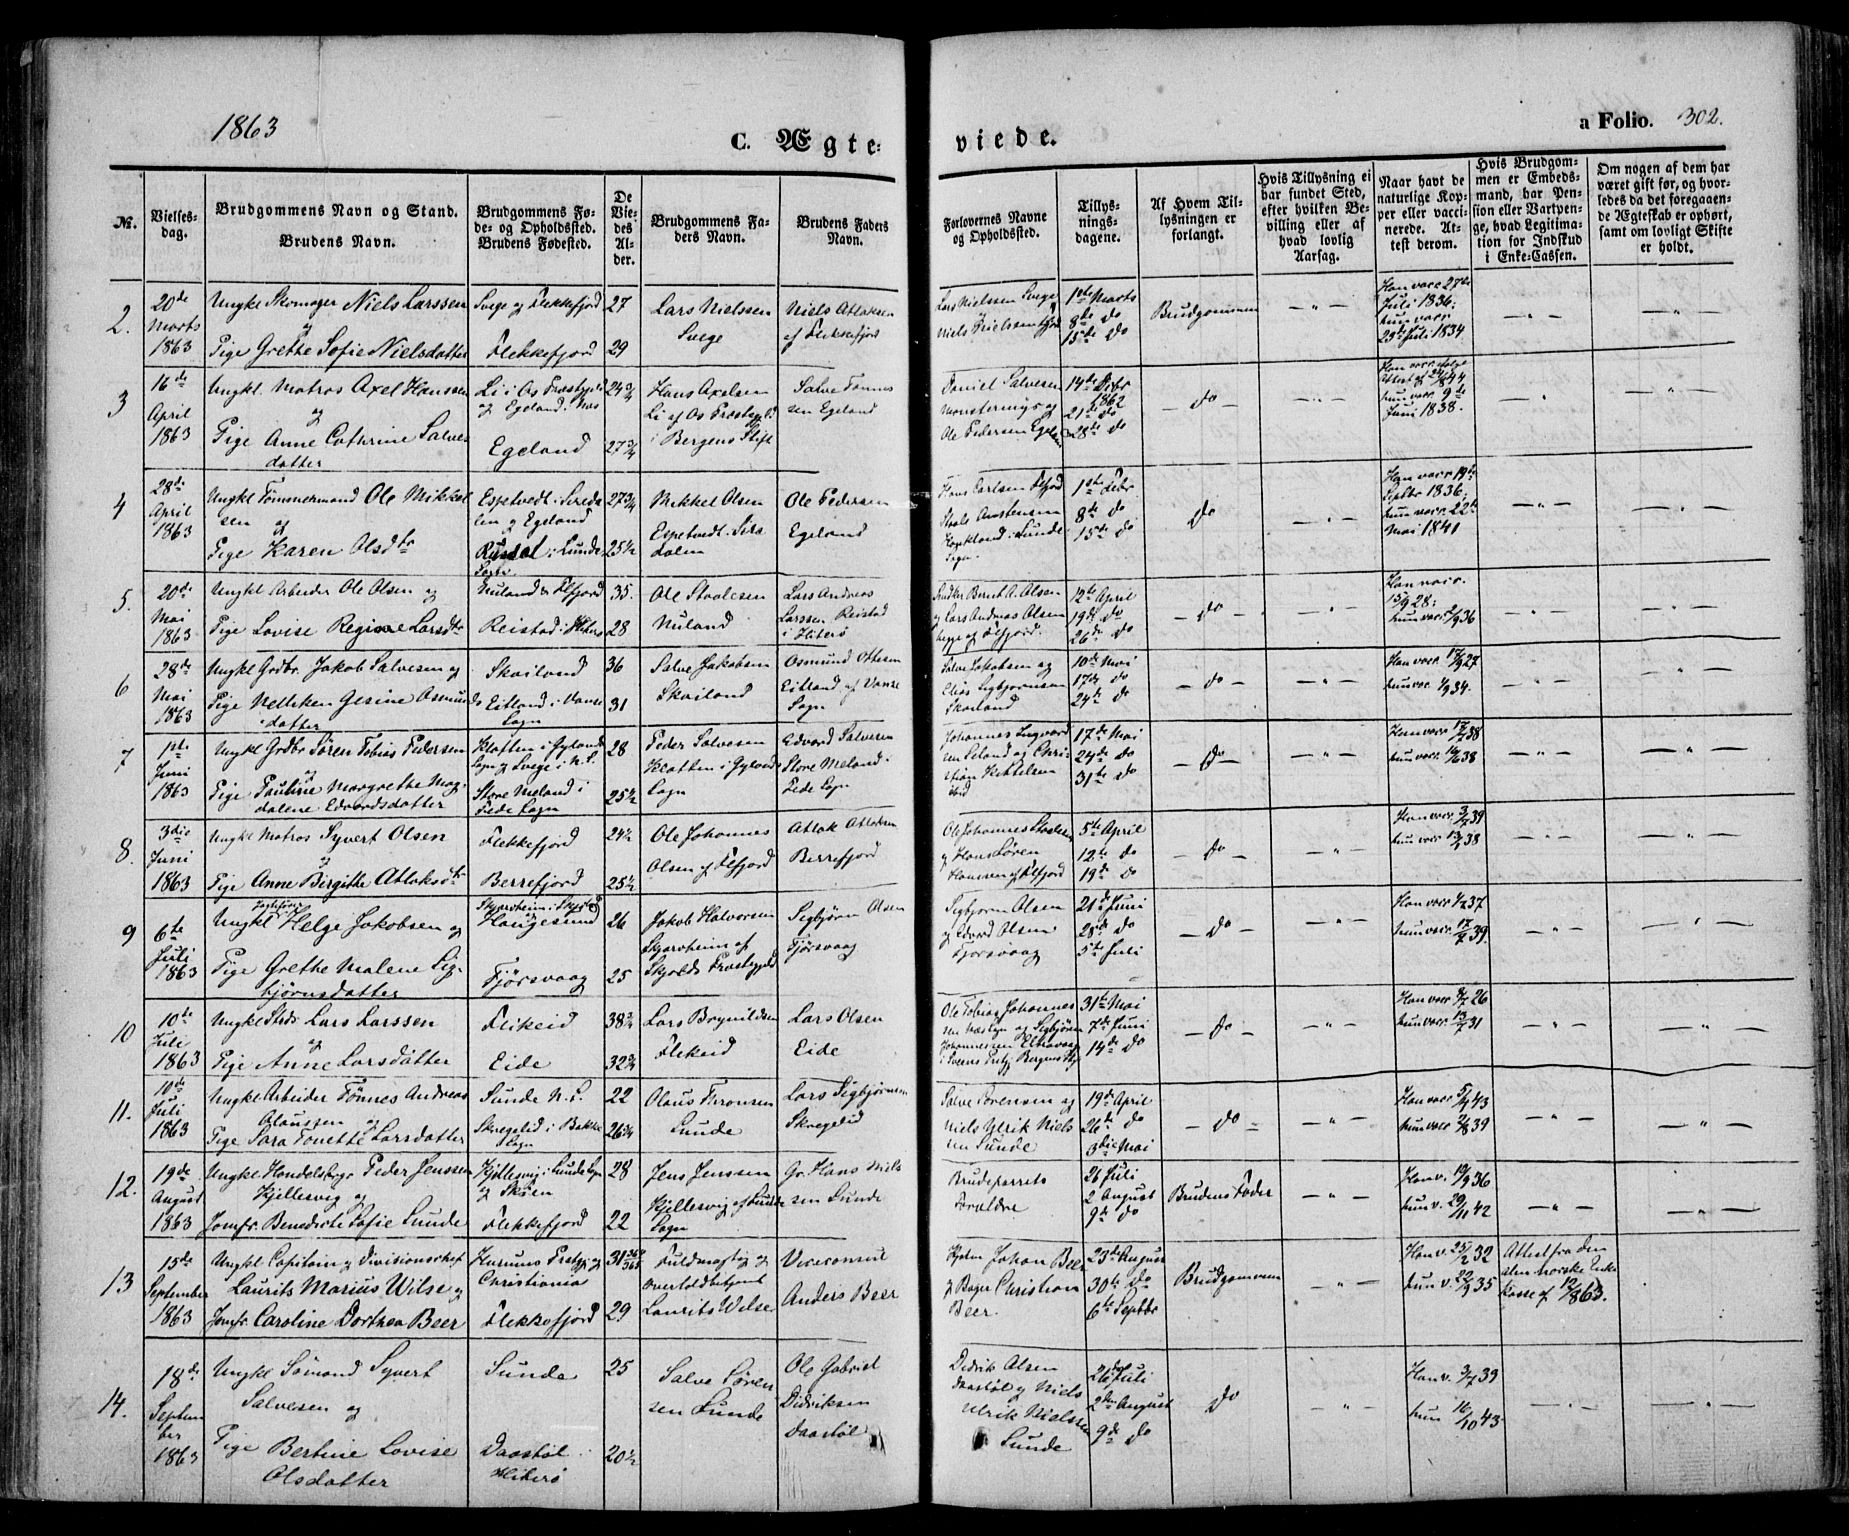 1863
C. Ægte-
viede.
a Folio. 302.
№.
Vielses-
dag.
Brudgommens Navn og Stand.
Brudens Navn.
Brudgommens Fø-
de- og Opholdssted.
Brudens Fødested.
De
Vie-
des
Al-
der.
Brudgommens Fa-
ders Navn.
Brudens Faders
Navn.
Forlovernes Navne
og Opholdssted.
Tillys-
nings-
dagene.
Af Hvem Til-
lysningen er
forlangt.
Hvis Tillysning ei
har fundet Sted,
efter hvilken Be-
villing eller af
hvad lovlig
Aarsag.
Naar havt de
naturlige Kop-
per eller vacci-
nerede. At-
test derom.
Hvis Brudgom-
men er Embeds-
mand, har Pen-
sion eller Vartpen-
ge, hvad Legitima-
tion for Indskud
i Enke-Cassen.
Om nogen af dem har
været gift før, og hvor-
ledes da det foregaaen-
de Ægteskab er ophørt,
samt om lovligt Skifte
er holdt.
2.
20de
Marts
1863
Ungkl Skomager Niels Larssen
og
Pige Grethe Sofie Nielsdatter
Svege og Flekkefjord
Flekkefjord
27
29
Lars Nielssen
Svege
Niels Atlaksen
af Flekkefjord
Lars Nielssen Svege
og
Niels Nielssen
1ste Marts
8de do
15de do
Brudgommen
Han vacc 27de
Juli 1836;
hun vacc
25de Juli 1834
3
16de
April
1863
Ungkl. Matros Axel Hanssen
og
Pige Anne Cathrine Salves
datter
Li i Os Præstegjeld
og Egeland
Egeland
24 3/4
27 3/4
Hans Axelsen
Li af Os Præstegjld
i Bergens Stift
Salve Tønnes
sen Egeland
Daniel Salvesen
og
Ole Pedersen Egeland
14de Debr
1862
21de do
28de do
do
hun vacc 9de
Juni 1838.
4
28de
April
1863
Ungkl Tømmermand Ole Mikkel
sen og
Pige Karen Olsdtr
Espetvedt i Sireda
len og Egeland
Rusdal i Lunde
27 3/4
25 1/2
Mikkel Olsen
Espetvedt Sira
dalen
Ole Pedersen
Egeland
Hans Carlsen
i Lunde
Sogn.
1ste Febr
8de do
15de do
do
Han vacc 19de
Septbr 1836;
hun vacc. 22de
Mai 1841
5.
20de
Mai
1863
Ungkl Arbeider Ole Olsen og
Pige Lovise Regine Larsdtr
Nuland & Flfjord
Reistad i Hiterø
35.
28
Ole Staalesen
Nuland
Lars Andreas
Larssen Reistad
i Hiterø
Snedker Bernt A. Olsen
og Lars Andreas Olsen
begge af Flfjord.
12te April
19de do
26de do
do
Han vacc.
15/9 28;
hun vacc 2/9 36
6
28de
Mai
1863
Ungkl Grdbr. Jakob Salvesen og
Pige Nelliken Gesine Osmunds
datter
Skailand
Eitland i Vanse
Sogn
36
31
Salve Jakobsen
Skailand
Osmund Ottesen
Eitland af Vanse
Sogn
Salve Jakobsen og
Elias Sigbjørnsen
Skailand
10de Mai
17de do
24de do
do
Han vacc 17/9 27
hun vacc 1/9 34.
7
1ste
Juni
1863
Ungkl Grdbr Søren Tobias Pedersen
og
Pige Pauline Margrethe Mag
dalene Edvardsdatter
Klatten i Gyland
Sogn og Svege i N. S.
Store Meland i
Fede Sogn
28
25 1/2
Peder Salvesen
Klatten i Gyland
Sogn
Edvard Salvesen
Store Meland i
Fede Sogn
Johannes Ingvard
sen Leland og Chri-
stian Kettelsen
ibid
17de Mai
24de do
31te do
do
Han vacc 17/7 38
hun vacc 16/6 38
8.
3die
Juni
1863
Ungkl Matros Syvert Olsen
og
Pige Anne Birgitte Atlaksdtr
Flekkefjord
Berrefjord
24 1/2
25 1/2
Ole Johannes
Olsen af Flfjord
Atlak Atlaksen
Berrefjord
Ole Johannes
og Hans Søren
Hansen af Flfjord
5te April
12te do
19de do
do
Han vacc 3/7 39
hun vacc 13/7 38
9
6te
Juli
1863
Ungkl Helge Jakobsen og
Pige Grethe Malene Sig-
bjørnsdatter
Skjoldheim i Skjold
og
Haugesund
Fjørsvaag
26
25
Jakob Halvorsen
af
Skjolds Præstegjeld
Sigbjørn Olsen
Fjørsvaag
Sigbjørn Olsen
og Edvard Olsen
Fjørsvaag
21de Juni
28de do
5te Juli
do
Han vacc 1/7 37
hun vacc 17/7 39.
10
10de
Juli
1863
Ungkl Lars Larssen
og
Pige Anne Larsdatter
Flikeid
Eide
38 3/4
32 3/4
Lars Brynildsen
Flikeid
Lars Olsen
Eide
Ole Tobias Johannes
sen og Sigbjørn
Johannessen
31te Mai
7de Juni
14de do
do
Han vacc 8/7 26
hun vacc 13/7 31
11.
10de
Juli
1863
Ungkl Arbeider Tønnes Andreas
Olaussen og
Pige Sara Tonette Larsdatter
Sunde N. S.
Skregelid i Bakke
Sogn
22
26 3/4
Olaus Thronsen
Sunde
Lars Sigbjørnsen
Skregelid
Salve Sørensen og
Niels Ulrik Niels
sen Sunde
19de April
26de do
3die Mai
do
Han vacc 5/7 43
hun vacc 7/8 39
12.
19de
August
1863
Ungkl Handelsbgr Peder Jenssen
Kjellesvig og
Jomfr. Benedicte Sofie Sunde
Kjellesvig i Sunde Sgn
og Skøen
Flekkefjord
28
22
Jens Jenssen
Kjellesvig af Sunde
Sogn
Gr. Hans Niels
sen Sunde
Brudeparrets
Forældre
26 Juli
2 August
9de do
Brudens Fader
Han v. 19/9 36
hun v. 29/11 42
13
15de
September
1863
Ungkl Capitain og Divisionschef
Laurits Marius Wilse og
Jomfr Caroline Dorthea Beer
Hurums Prstgj og
Christiania
Flekkefjord
31 364/365
29
Fuldmægtig og
Overtoldbetjent
Laurits Wilse
Viceconsul
Anders Beer
Johan Beer
og Bager Christian
Beer.
23de August
30te do
6te Septbr
Brudgommen
Han v. 25/2 32
hun v. 22/9 35
Attest fra den
alm norske Enke
kasse af 12/8 63.
14.
18de
Septem
ber
1863
Ungkl Sømand Syvert
Salvesen og
Pige Bertine Lovise
Olsdatter
Sunde
Daastøl i
Hiterø
25
20 1/2
Salve Søren
sen Sunde
Ole Gabriel
Didriksen
Daastøl
Didrik Olsen
Daastøl og Niels
Ulrik Nielssen
Sunde
26de Juli
2den August
9de do
do
Han v. 3/7 39
hun 16/10 43